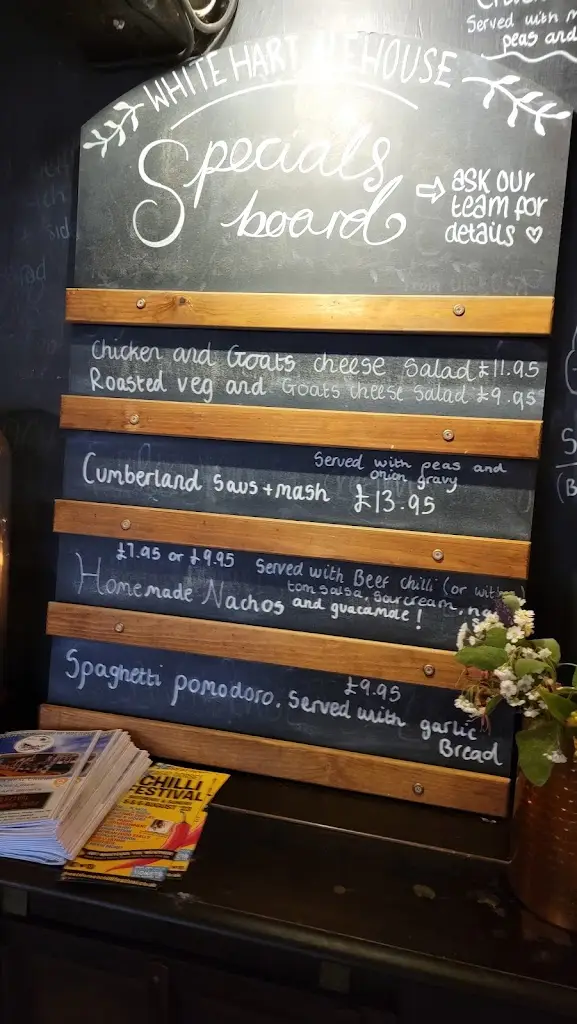 Served with
peas and
WHITE HART ALEHOUSE
Specials
board
ask our
team for
details
Chicken and Goats cheese Salad £11.95
Roasted veg and Goats cheese Salad £9.95
Served with peas and
onion gravy
Cumberland saus+mash £13.95
£7.95 or £9.95 Served with Beef chilli (or with
tom salsa, sourcream,
Homemade Nachos and guacamole!
£9.95
Spaghetti pomodoro. Served with garlic
Bread
CHILLI
FESTIVAL